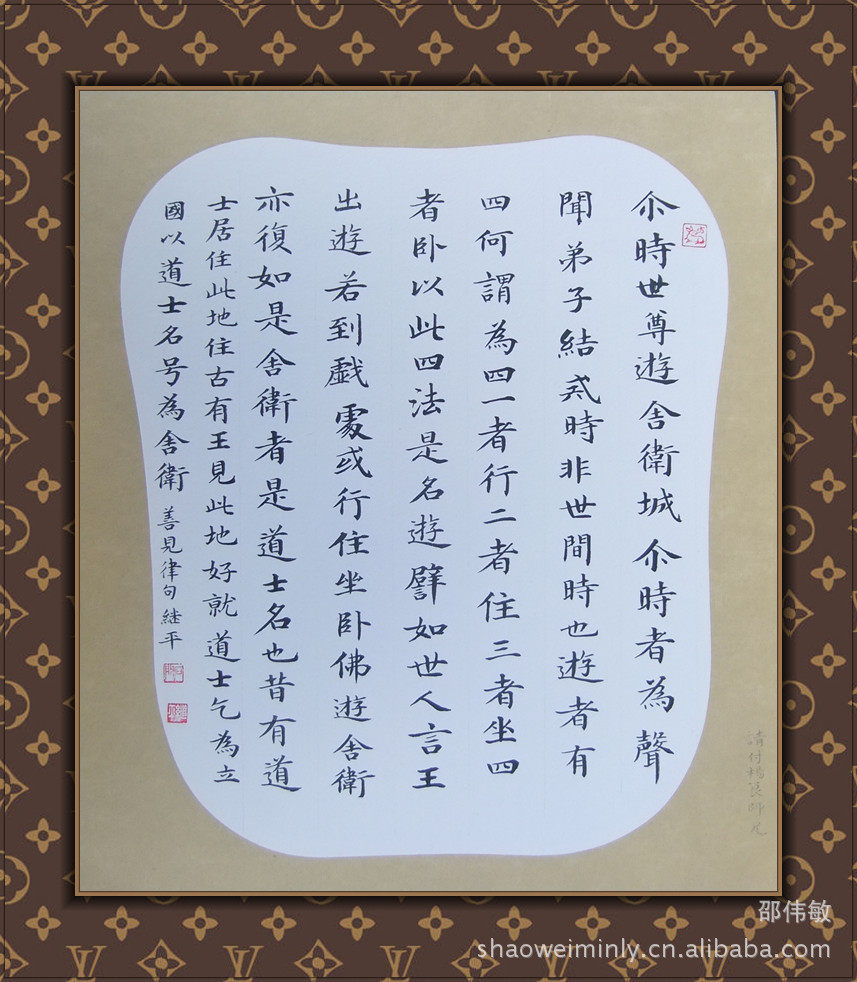 尒時世尊遊舍衛城尒時者為聲
聞弟子結戒時非世間時也遊者有
四何謂為四一者行二者住三者坐四
者卧以此四法是名遊譬如世人言王
出遊若到戲處或行住坐卧佛遊舍衛
亦復如是舍衛者是道士名也昔有道
士居住此地住古有王見此地好就道士乞為立
國以道士名号為舍衛
善見律句継平
邵伟敏
shaoweiminly.cn.alibaba.com